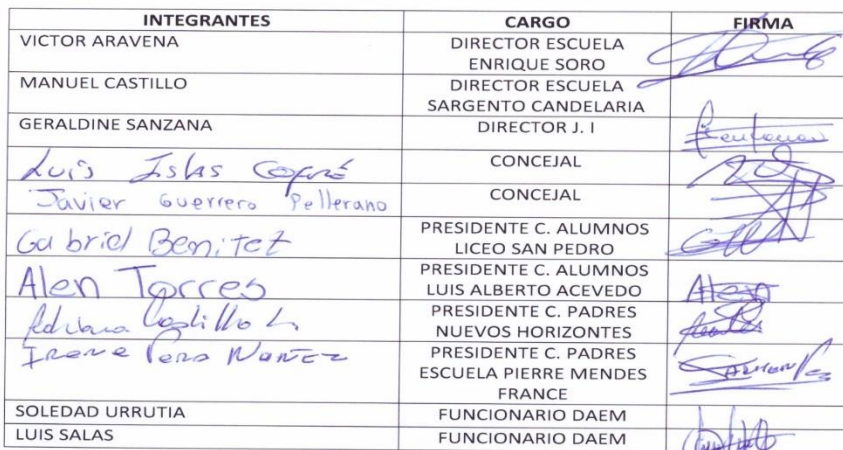 INTEGRANTES CARGO FIRMA
VICTOR ARAVENA DIRECTOR ESCUELA
ENRIQUE SORO
MANUEL CASTILLO DIRECTOR ESCUELA
SARGENTO CANDELARIA
GERALDINE SANZANA DIRECTOR J. I
Luis Islas Cofré CONCEJAL
Javier Guerrero Pellerano CONCEJAL
Gabriel Benitez PRESIDENTE C. ALUMNOS
LICEO SAN PEDRO
Alen Torres PRESIDENTE C. ALUMNOS
LUIS ALBERTO ACEVEDO Alen
Adriana Castillo L. PRESIDENTE C. PADRES
NUEVOS HORIZONTES
Irene Nuñez PRESIDENTE C. PADRES
ESCUELA PIERRE MENDES
FRANCE
SOLEDAD URRUTIA FUNCIONARIO DAEM
LUIS SALAS FUNCIONARIO DAEM